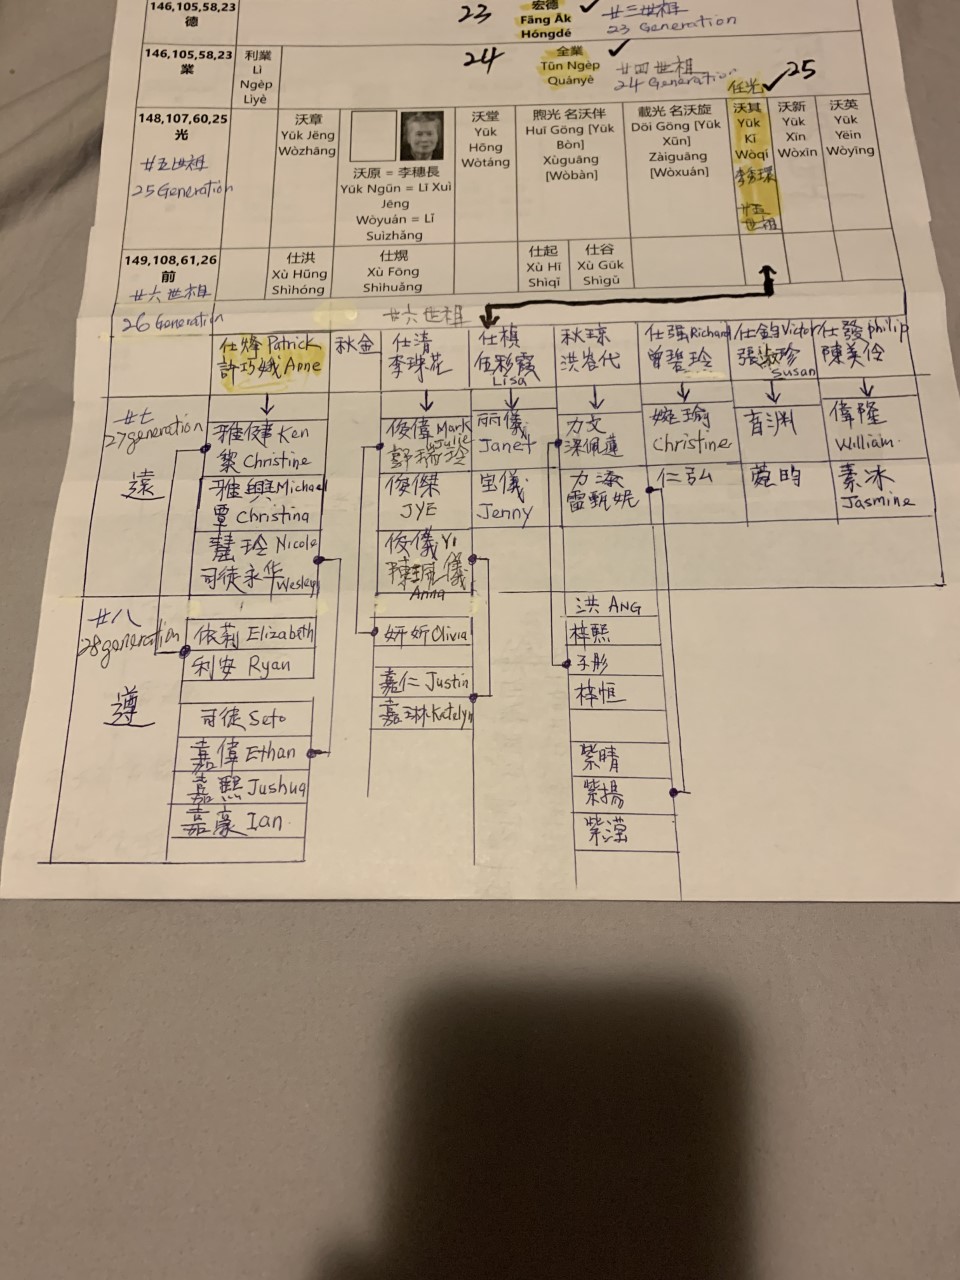 146,105,58,23
德
23
宏德
Fāng Āk
Hóngdé
廿三世祖
23 Generation
146,105,58,23
業
利業
Lì
Ngèp
Lìyè
24
全業
Tūn Ngèp
Quányè
廿四世祖
24 Generation
任光
25
148,107,60,25
光
廿五世祖
25 Generation
沃章
Yūk Jēng
Wòzhāng
沃原 = 李穗長
Yūk Ngūn = Lī Xuì
Jēng
Wòyuán = Lǐ
Suìzhǎng
沃堂
Yūk
Hōng
Wòtáng
煦光 名沃伴
Huī Gōng [Yūk
Bòn]
Xùguāng
[Wòbàn]
載光 名沃旋
Dōi Gōng [Yūk
Xūn]
Zàiguāng
[Wòxuán]
沃其
Yūk
Kī
Wòqí
李秀環
廿五
世祖
沃新
Yūk
Xīn
Wòxīn
沃英
Yūk
Yēin
Wòyīng
149,108,61,26
前
廿六世祖
26 Generation
仕洪
Xù Hūng
Shìhóng
仕熀
Xù Fōng
Shìhuǎng
仕起
Xù Hī
Shìqǐ
仕谷
Xù Gūk
Shìgǔ
廿六世祖
仕烽 Patrick
許巧娥 Anne
秋金
仕清
李珠花
仕楨
伍彩霞
Lisa
秋琼
洪岑代
仕强 Richard
曾碧玲
仕鈞 Victor
張淑珍
Susan
仕發 philip
陳美伶
廿七
27generation
遠
雅健 Ken
黎 Christine
雅興 Michael
覃 Christina
慧玲 Nicole
司徒永华 Wesley
俊偉 Mark
郭瑞玲 Julie
俊傑
JYE
俊儀 Yi
陳珮儀
Anna
丽儀
Janet
宝儀
Jenny
力文
梁佩蓮
力添
雷甄妮
婉瑜
Christine
仁弘
育渊
菀昀
偉隆
William
素冰
Jasmine
廿八
28generation
遵
依莉 Elizabeth
利安 Ryan
司徒 Seto
嘉偉 Ethan
嘉熙 Jushua
嘉豪 Ian
妍妡 Olivia
嘉仁 Justin
嘉琳 Katelyn
洪 ANG
梓熙
子彤
梓恒
紫晴
紫揚
紫滢